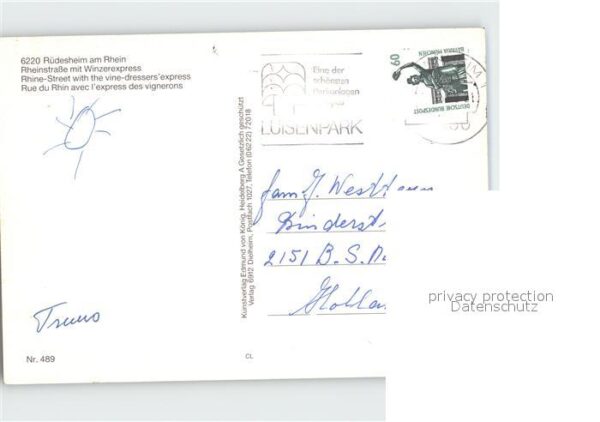 6220 Rüdesheim am Rhein
Rheinstraße mit Winzerexpress
Rhine-Street with the vine-dressers'express
Rue du Rhin avec l'express des vignerons
Nr. 489
Kunstverlag Edmund von König, Heidelberg A Gesetzlich geschützt
Verlag, 6912 Dielheim, Postfach 1027, Telefon (06222) 72018
CL
Eine der
schönsten
Parkanlagen
LUISENPARK
60
BAVARIA MÜNCHEN
DEUTSCHE BUNDESPOST
fam. J.
2151 B.
privacy protection
Datenschutz